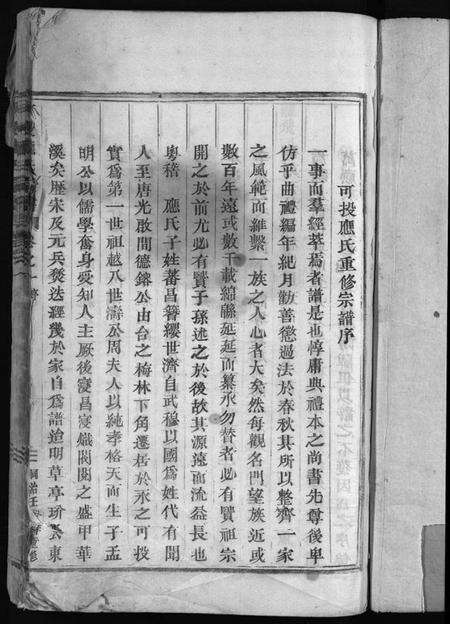 可投應氏重修宗譜序
一事而羣經萃焉者譜是也惇庸典禮本之尚書先尊後卑
仿乎曲禮編年紀月勸善懲過法於春秋其所以整齊一家
之風範而維繫一族之人心者大矣然每觀名門望族近或
數百年遠或數千載綿縣延延而纂承勿替者必有賢祖宗
開之於前尤必有賢子孫述之於後故其源遠而流益長也
粵稽 應氏子姓蕃昌簪纓世濟自武穆以國為姓代有聞
人至唐光啟間德鎔公由台之梅林下角遷居於永之可投
實為第一世祖越八世濤公周夫人以純孝格天而生子孟
明公以儒學奮身受知人主厥後寖昌寖熾閥閱之盛甲華
溪矣歷宋及元兵燹迭經幾於家自為譜逮明草亭玠
東
同治壬
修